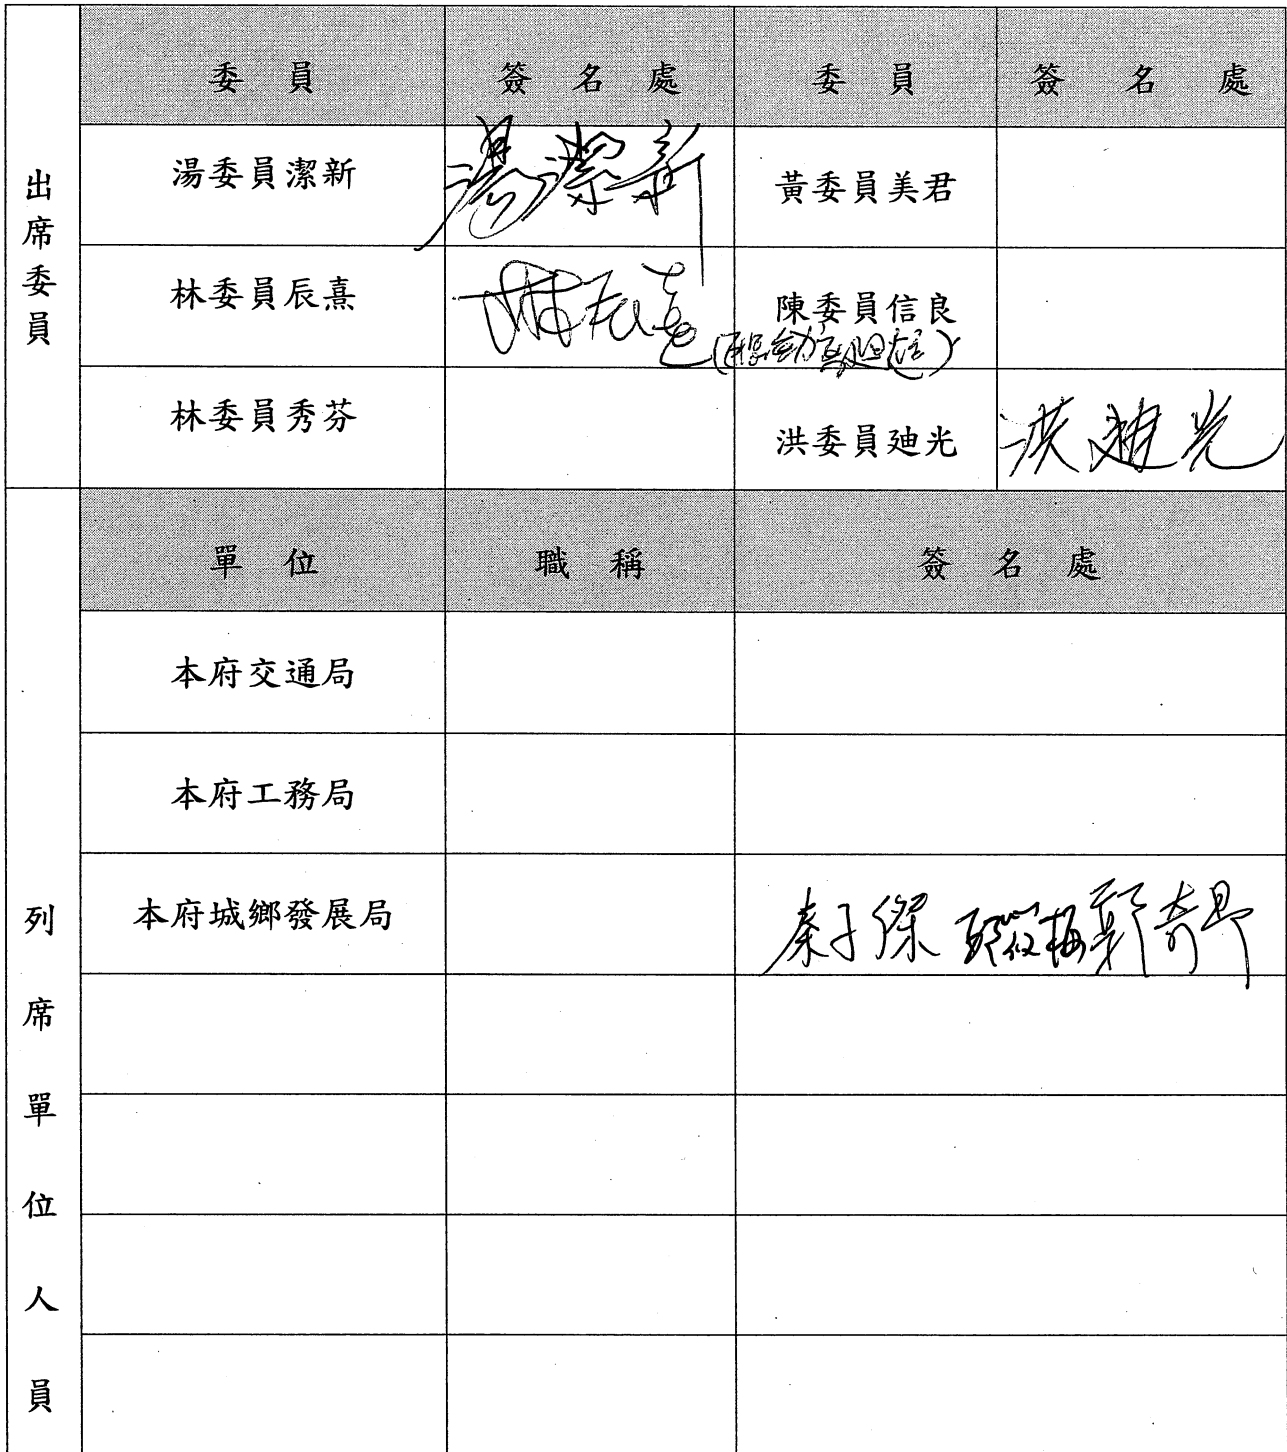 出席委員
委員 簽名處 委員 簽名處
湯委員潔新 湯潔新 黃委員美君
林委員辰熹 林辰熹 陳委員信良
林委員秀芬 洪委員廸光 洪廸光
列席單位人員
單位 職稱 簽名處
本府交通局
本府工務局
本府城鄉發展局 秦子傑